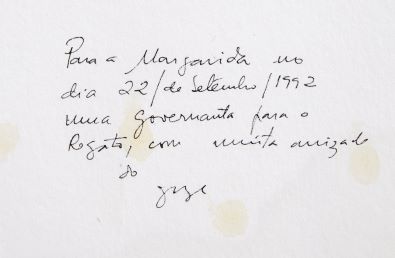 Para a Margarida no
dia 22/de Setembro/1992
uma Governanta para o
Regato, com muita amizade
do